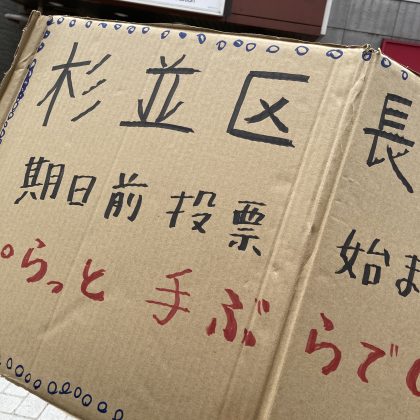 杉並区長
期日前投票 始ま
ぷらっと 手ぶらで